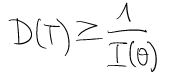 D(T) ≥ 1/I(θ)